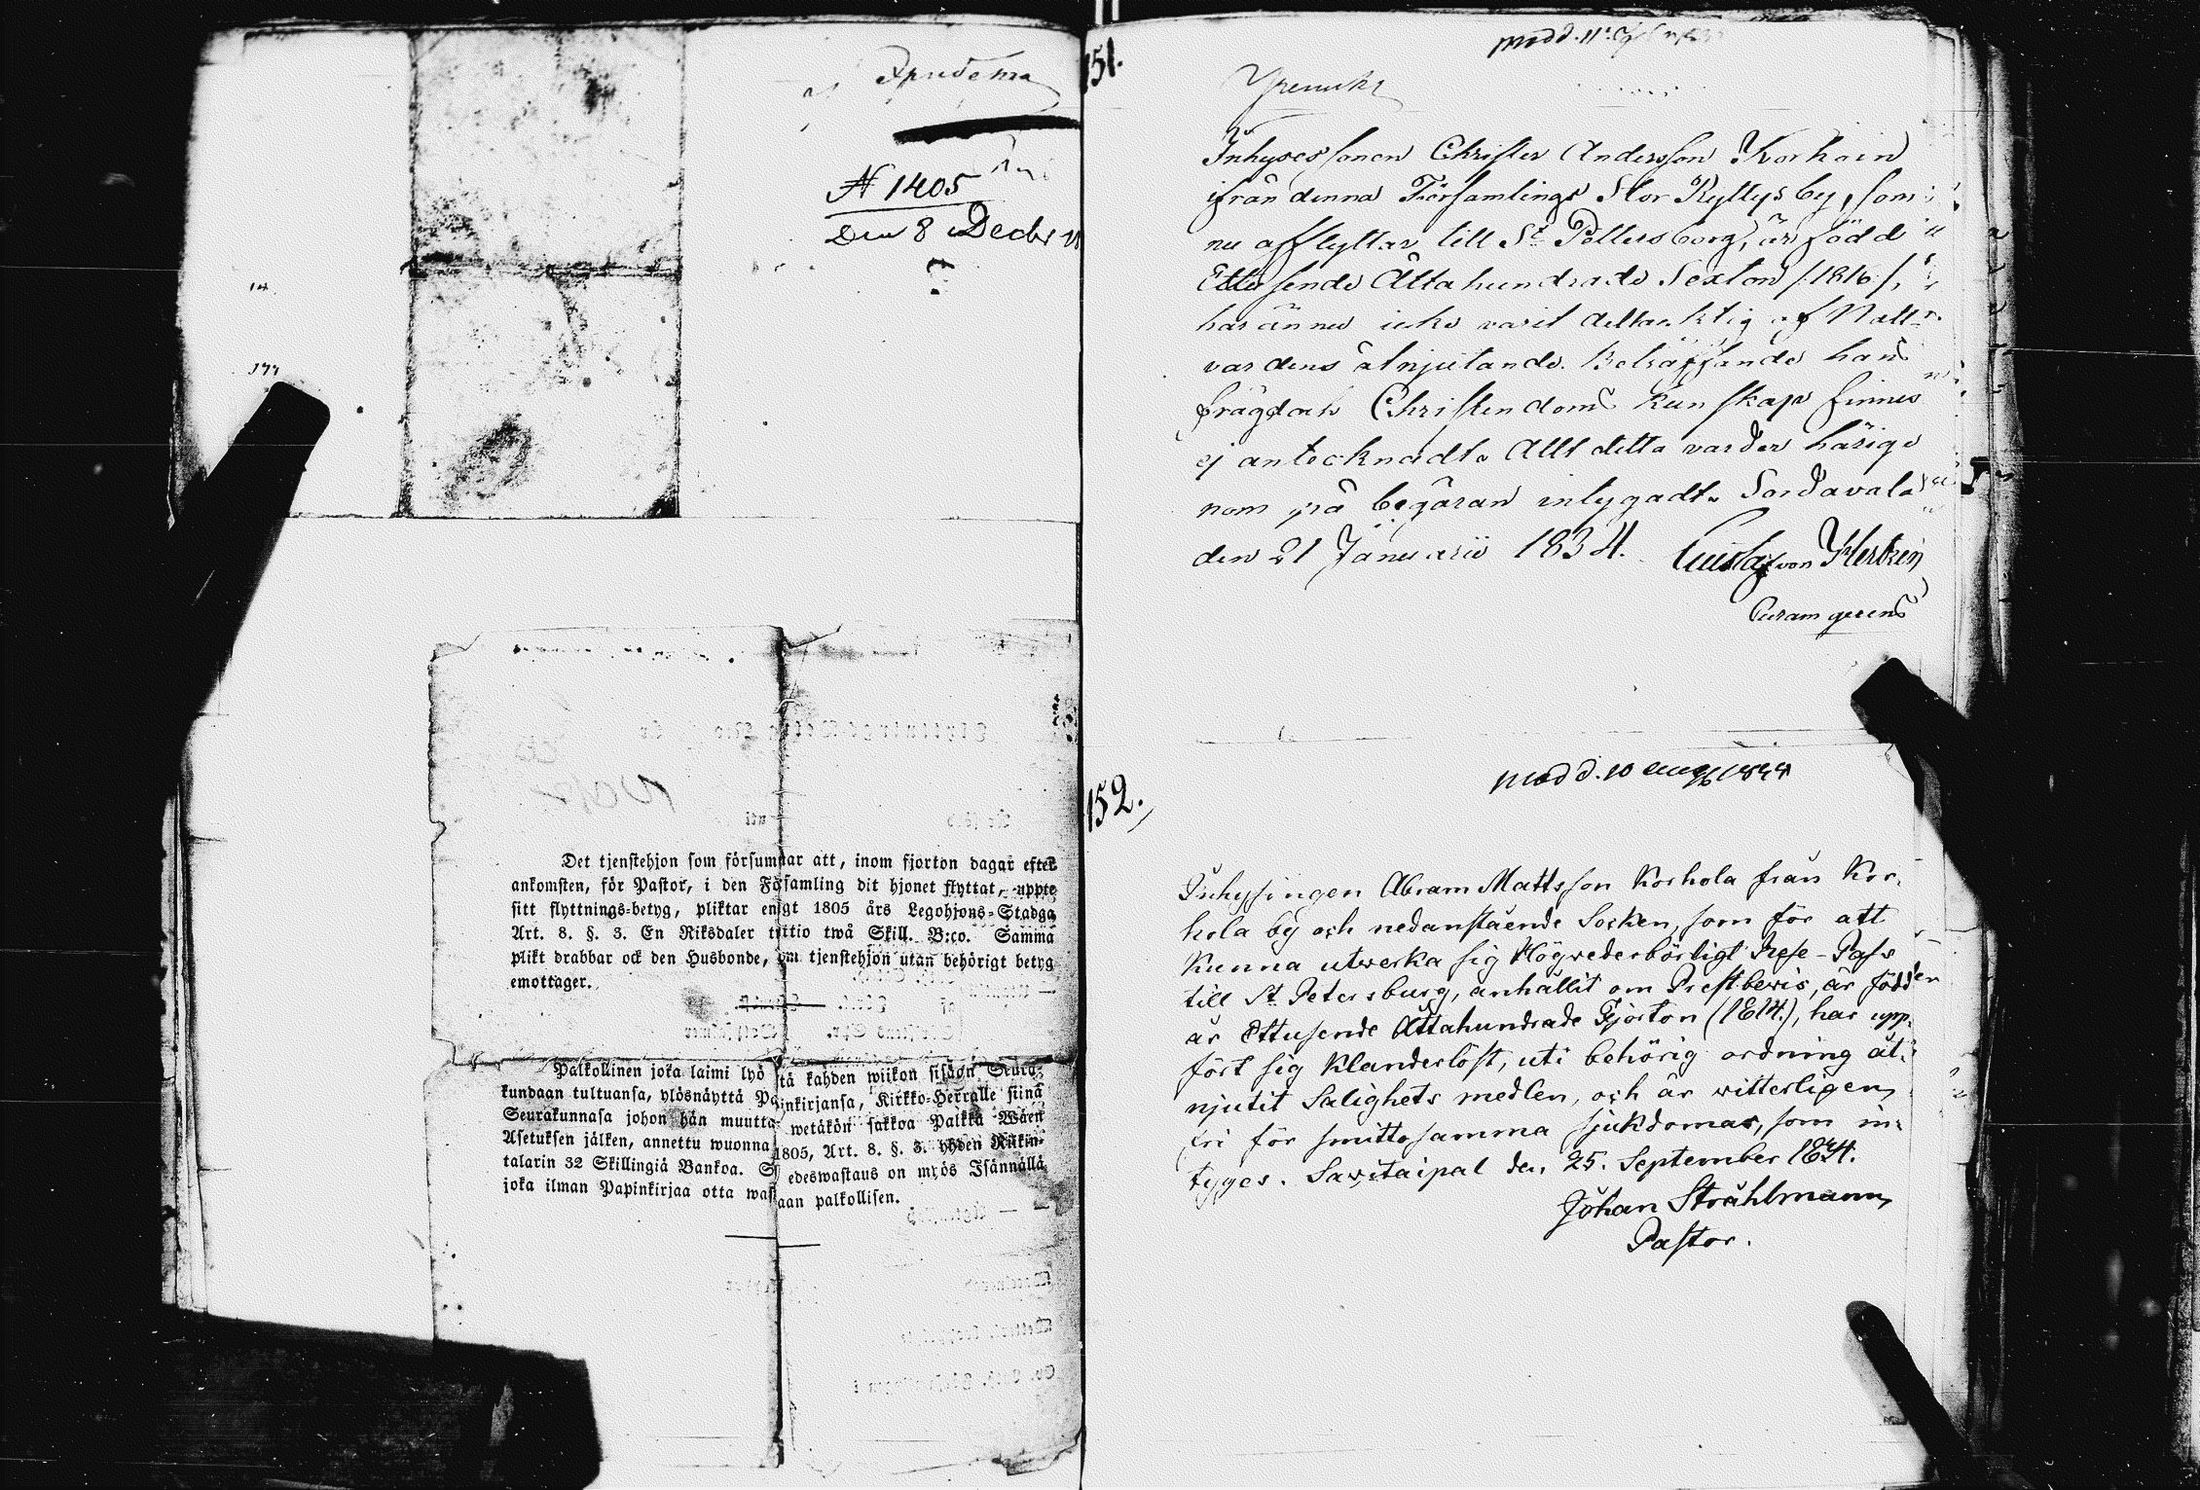 N 1405
Den 8 Decbr
14
Det tjenstehjon som försummar att, inom fjorton dagar efter
ankomsten, för Pastor, i den Församling dit hjonet flyttat, uppte
sitt flyttnings-betyg, pliktar enligt 1805 års Legohjons-Stadga
Art. 8. §. 3. En Riksdaler trettio twå Skill. B:co. Samma
plikt drabbar ock den Husbonde, om tjenstehjon utan behörigt betyg
emottager.
Palkollinen joka laimi lyö että kahden wiikon sisään Seura-
kundaan tultuansa, ylösnäyttä Papinkirjansa, Kirkko-Herralle siinä
Seurakunnasa johon hän muutta wetäkön sakkoa Palkka-Wäen
Asetuksen jälken, annettu wuonna 1805, Art. 8. §. 3. yhden Riikin-
talarin 32 Skillingiä Bankoa. edeswastaus on myös Isännällä
joka ilman Papinkirjaa otta wastaan palkollisen.
151.
Inhyses sonen Christer Andersson Korhoin
ifrån denna Församlings Stor Kyttys by, som
nu afflyttar till St Pettersborg, är född
Ettusende Åttahundrade Sexton /:1816:/,
har ännu icke varit deltacktig af Natt-
vardens åtnjutande. Beträffande hans
frägd och Christendoms kunskap finnes
ej antecknadt. Allt detta varder härige
nom på begäran intygadt. Sordavala
den 21 Januarii 1834. Gustaf von
Curam gerens
152.
Inhysingen Abram Mattsson Korhola från Kor-
hola by och nedanstående Socken, som för att
kunna utwerka sig Högvederbörligt Rese-Pass
till St Petersburg, anhållit om Prestbevis, är född den
år Ettusende Åttahundrade Fjorton (1814.), har upp-
fört sig klanderlöst, uti behörig ordning åt-
njutit Salighets medlen, och är witterligen
fri för smittosamma sjukdomar, som in-
tyges. Savitaipal den 25. September 1834.
Johan Stråhlmann,
Pastor.